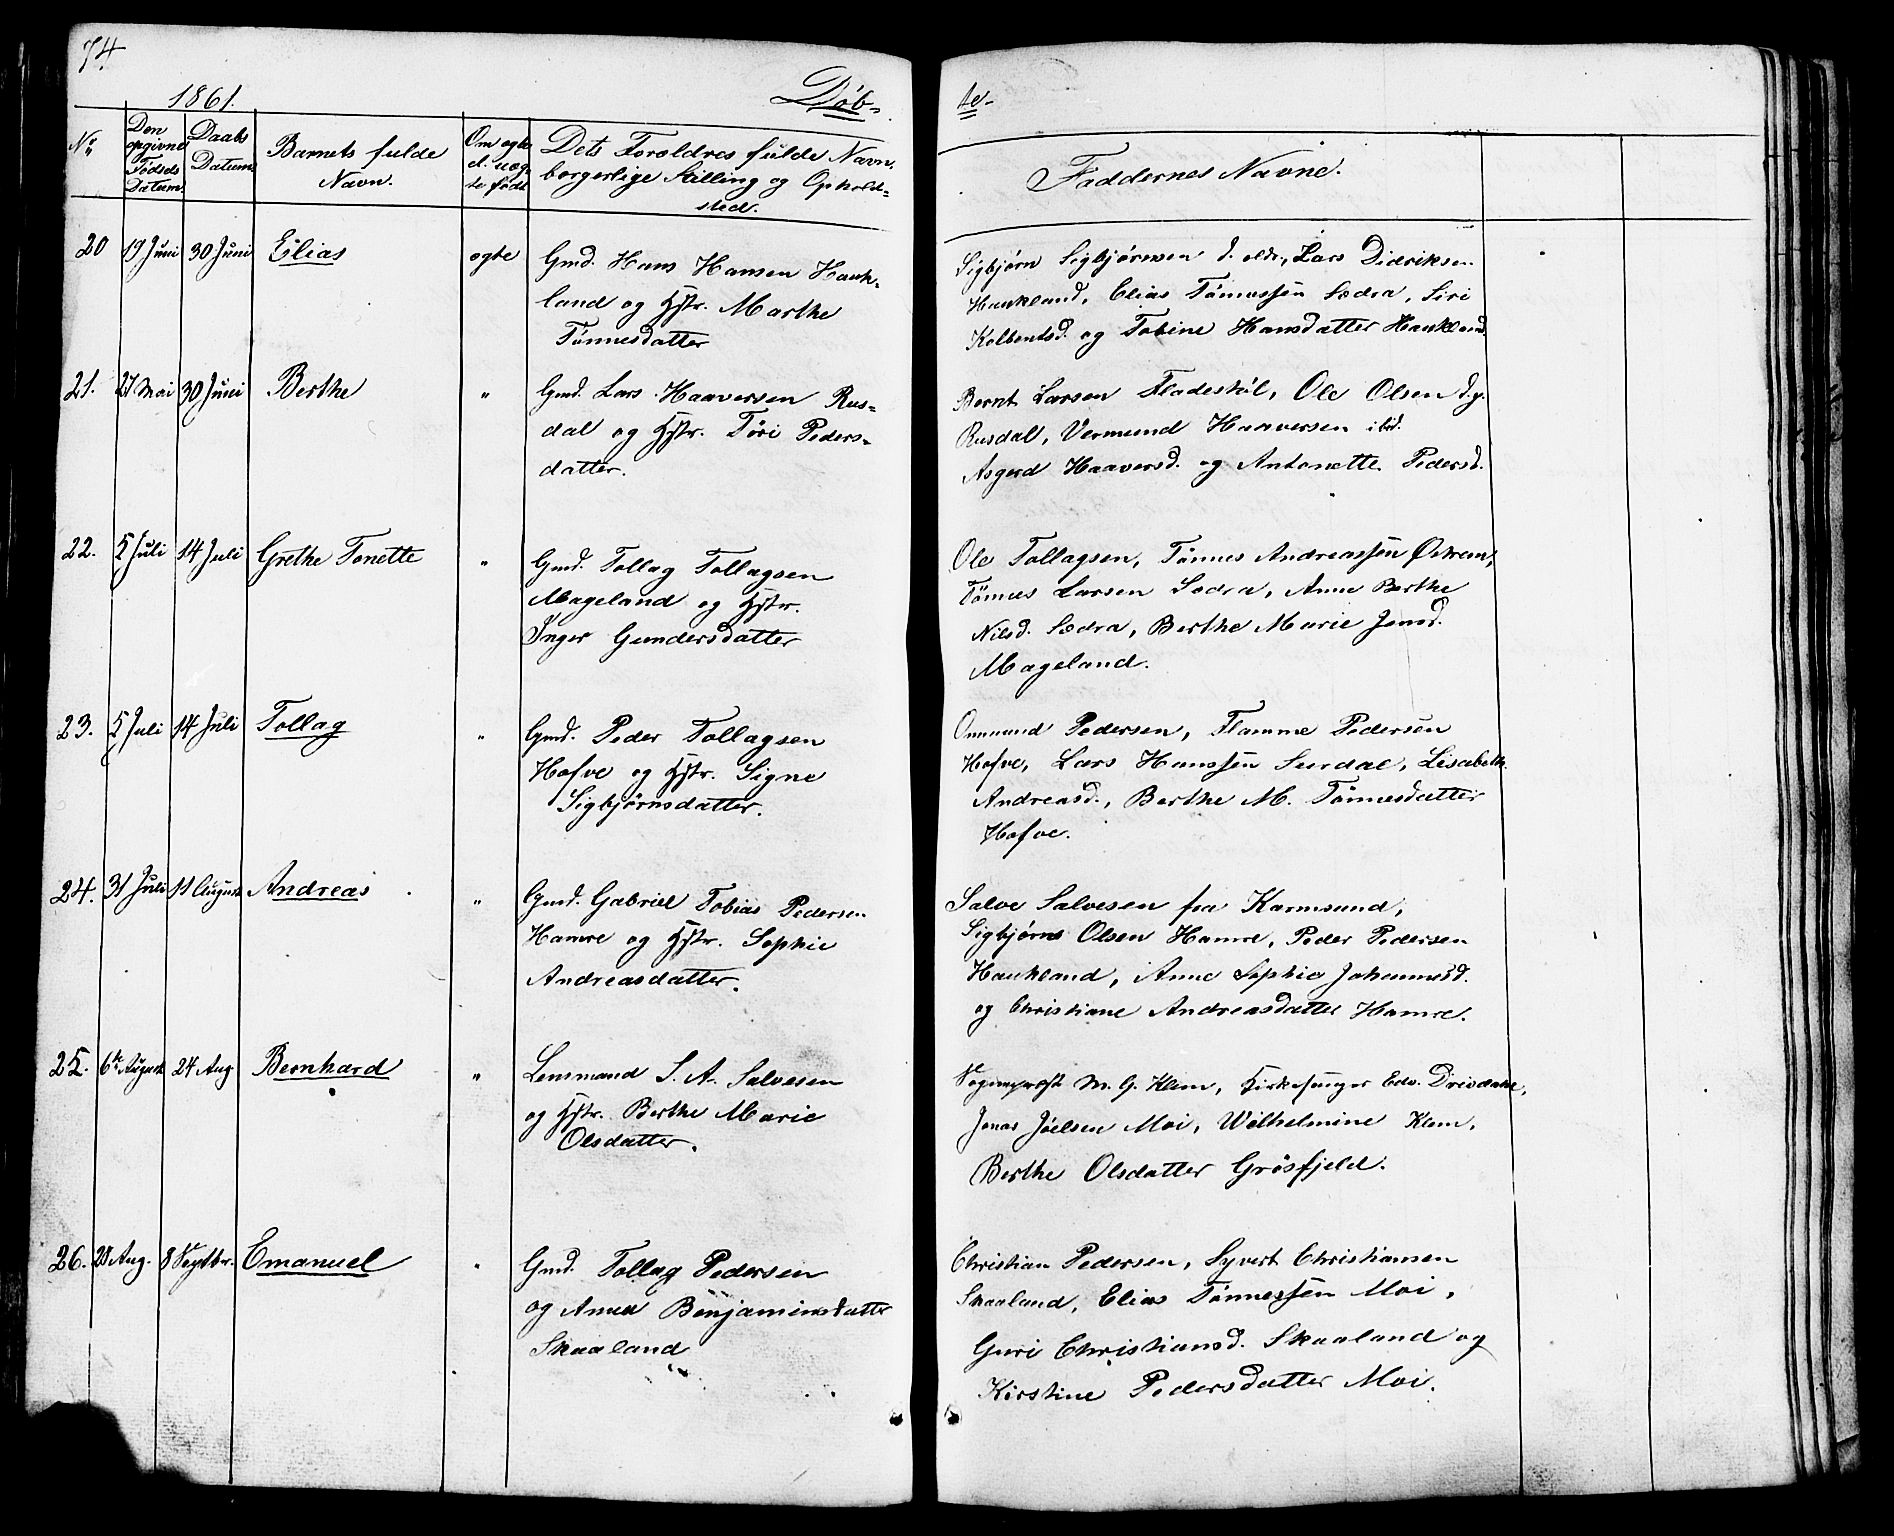 74
1861.
Døb-
te-
No
Den opgivne Fødsels Datum
Daabs Datum
Barnets fulde Navn.
Om ægte el. uægte født
Dets Forældres fulde Navn, borgerlige Stilling og Opholdssted.
Faddernes Navne.
20 19 Juni 30 Juni Elias ægte
Gmd. Hans Hansen Hauk-
land og Hstr. Marthe
Tønnesdatter
Sigbjørn Sigbjørnsen d. eldr., Lars Didriksen
Haukland, Elias Tønnessen Lædra, Siri
Kolbentsd. og Tobine Hansdatter Haukland
21. 27 Mai 30 Juni Berthe "
Gmd. Lars Haaversen Rus-
dal og Hstr. Tøri Peders-
datter.
Bernt Larsen Fladestøl, Ole Olsen d.y.
Rusdal, Vermund Haaversen ibd.
Asgerd Haaversd. og Antonette Pedersd.
22. 5 Juli 14 Juli Grethe Tonette "
Gmd. Tollag Tollagsen
Mageland og Hstr.
Inger Gundersdatter
Ole Tollagsen, Tønnes Andreassen Østrem,
Tønnes Larsen Lædra, Anne Berthe
Nilsd. Lædra, Berthe Marie Jonsd.
Mageland.
23. 5 Juli 14 Juli Tollag "
Gmd. Peder Tollagsen
Hofve og Hstr. Signe
Sigbjørnsdatter.
Ommund Pedersen, Flamme Pedersen
Hofve, Lars Hanssen Surdal, Lisabeth
Andreasd., Berthe M. Tønnesdatter
Hofve.
24. 31 Juli 11 August Andreas "
Gmd. Gabriel Tobias Pedersen
Hamre og Hstr. Sophie
Andreasdatter.
Salve Salvesen fra Karmsund,
Sigbjørn Olsen Hamre, Peder Pedersen
Haukland, Anne Sophie Johannesd.
og Christiane Andreasdatter Hamre.
25. 6te August 24 Aug Bernhard "
Lensmand S. A. Salvesen
og Hstr. Berthe Marie
Olsdatter.
Sogneprest M. G. Klem, Kirkesanger Edv. Drisdahl,
Jonas Joelsen Moi, Wilhelmine Klem,
Berthe Olsdatter Grøsfjeld.
26. 28 Aug. 8 Septbr. Emanuel "
Gmd. Tollag Pedersen
og Anna Benjaminsdatter
Skaaland
Christian Pedersen, Syvert Christiansen
Skaaland, Elias Tønnessen Moi,
Guri Christiansd. Skaaland og
Kirstine Pedersdatter Moi.